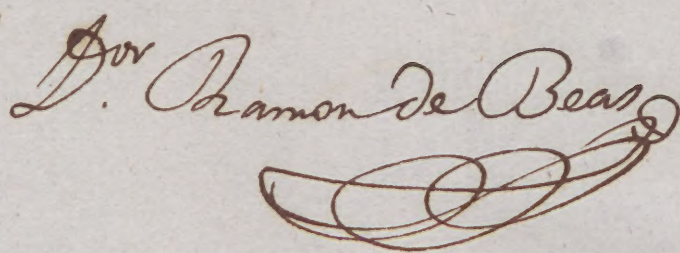 D.or Ramon de Beas